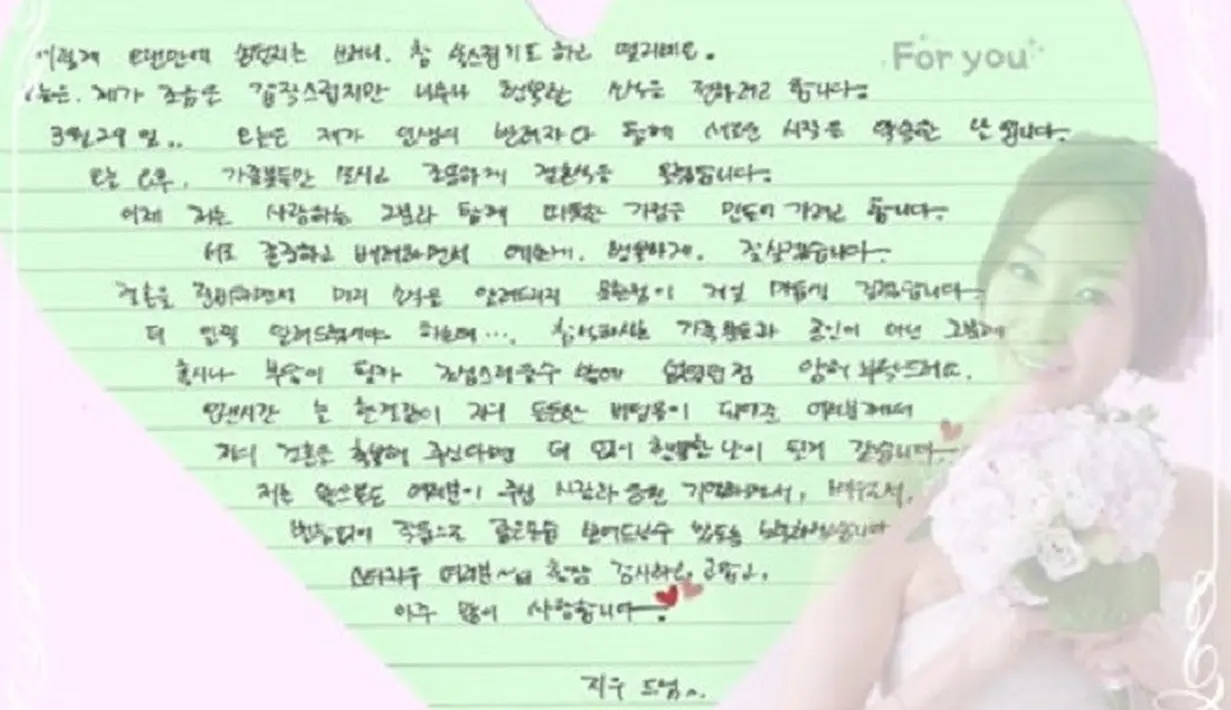 For you
이렇게 오랜만에 손편지를 쓰려니, 참 쑥스럽기도 하고 떨리네요.
오늘은, 제가 조금은 갑작스럽지만 너무나 행복한 소식을 전하려고 합니다~
3월 29일.. 오늘은 제가 인생의 반려자와 함께 서로의 시작을 약속한 날입니다~
오늘 오후, 가족분들만 모시고 조용하게 결혼식을 올렸습니다~
이제 저는 사랑하는 그분과 함께 따뜻한 가정을 만들어가려고 합니다~
서로 존중하고 배려하면서 예쁘게, 행복하게, 잘살겠습니다~
결혼을 준비하면서 미리 소식을 알려드리지 못한점이 제일 마음에 걸렸답니다~
더 일찍 알려드렸어야 하는데···, 참석하시는 가족분들과 공인이 아닌 그분께
혹시나 부담이 될까 조심스러울수 밖에 없었던점 양해 부탁드려요.
오랜시간 늘 한결같이 저의 든든한 버팀목이 되어준 여러분께서
저의 결혼을 축복해 주신다면 더 없이 행복한 날이 될거 같습니다~
저는 앞으로도 여러분이 주신 사랑과 응원 기억하면서, 배우로서,
변함없이 작품으로 좋은모습 보여드릴수 있도록 노력하겠습니다
스타지우 여러분~ 항상 감사하고, 고맙고,
아주 많이 사랑합니다~
지우 드림~.